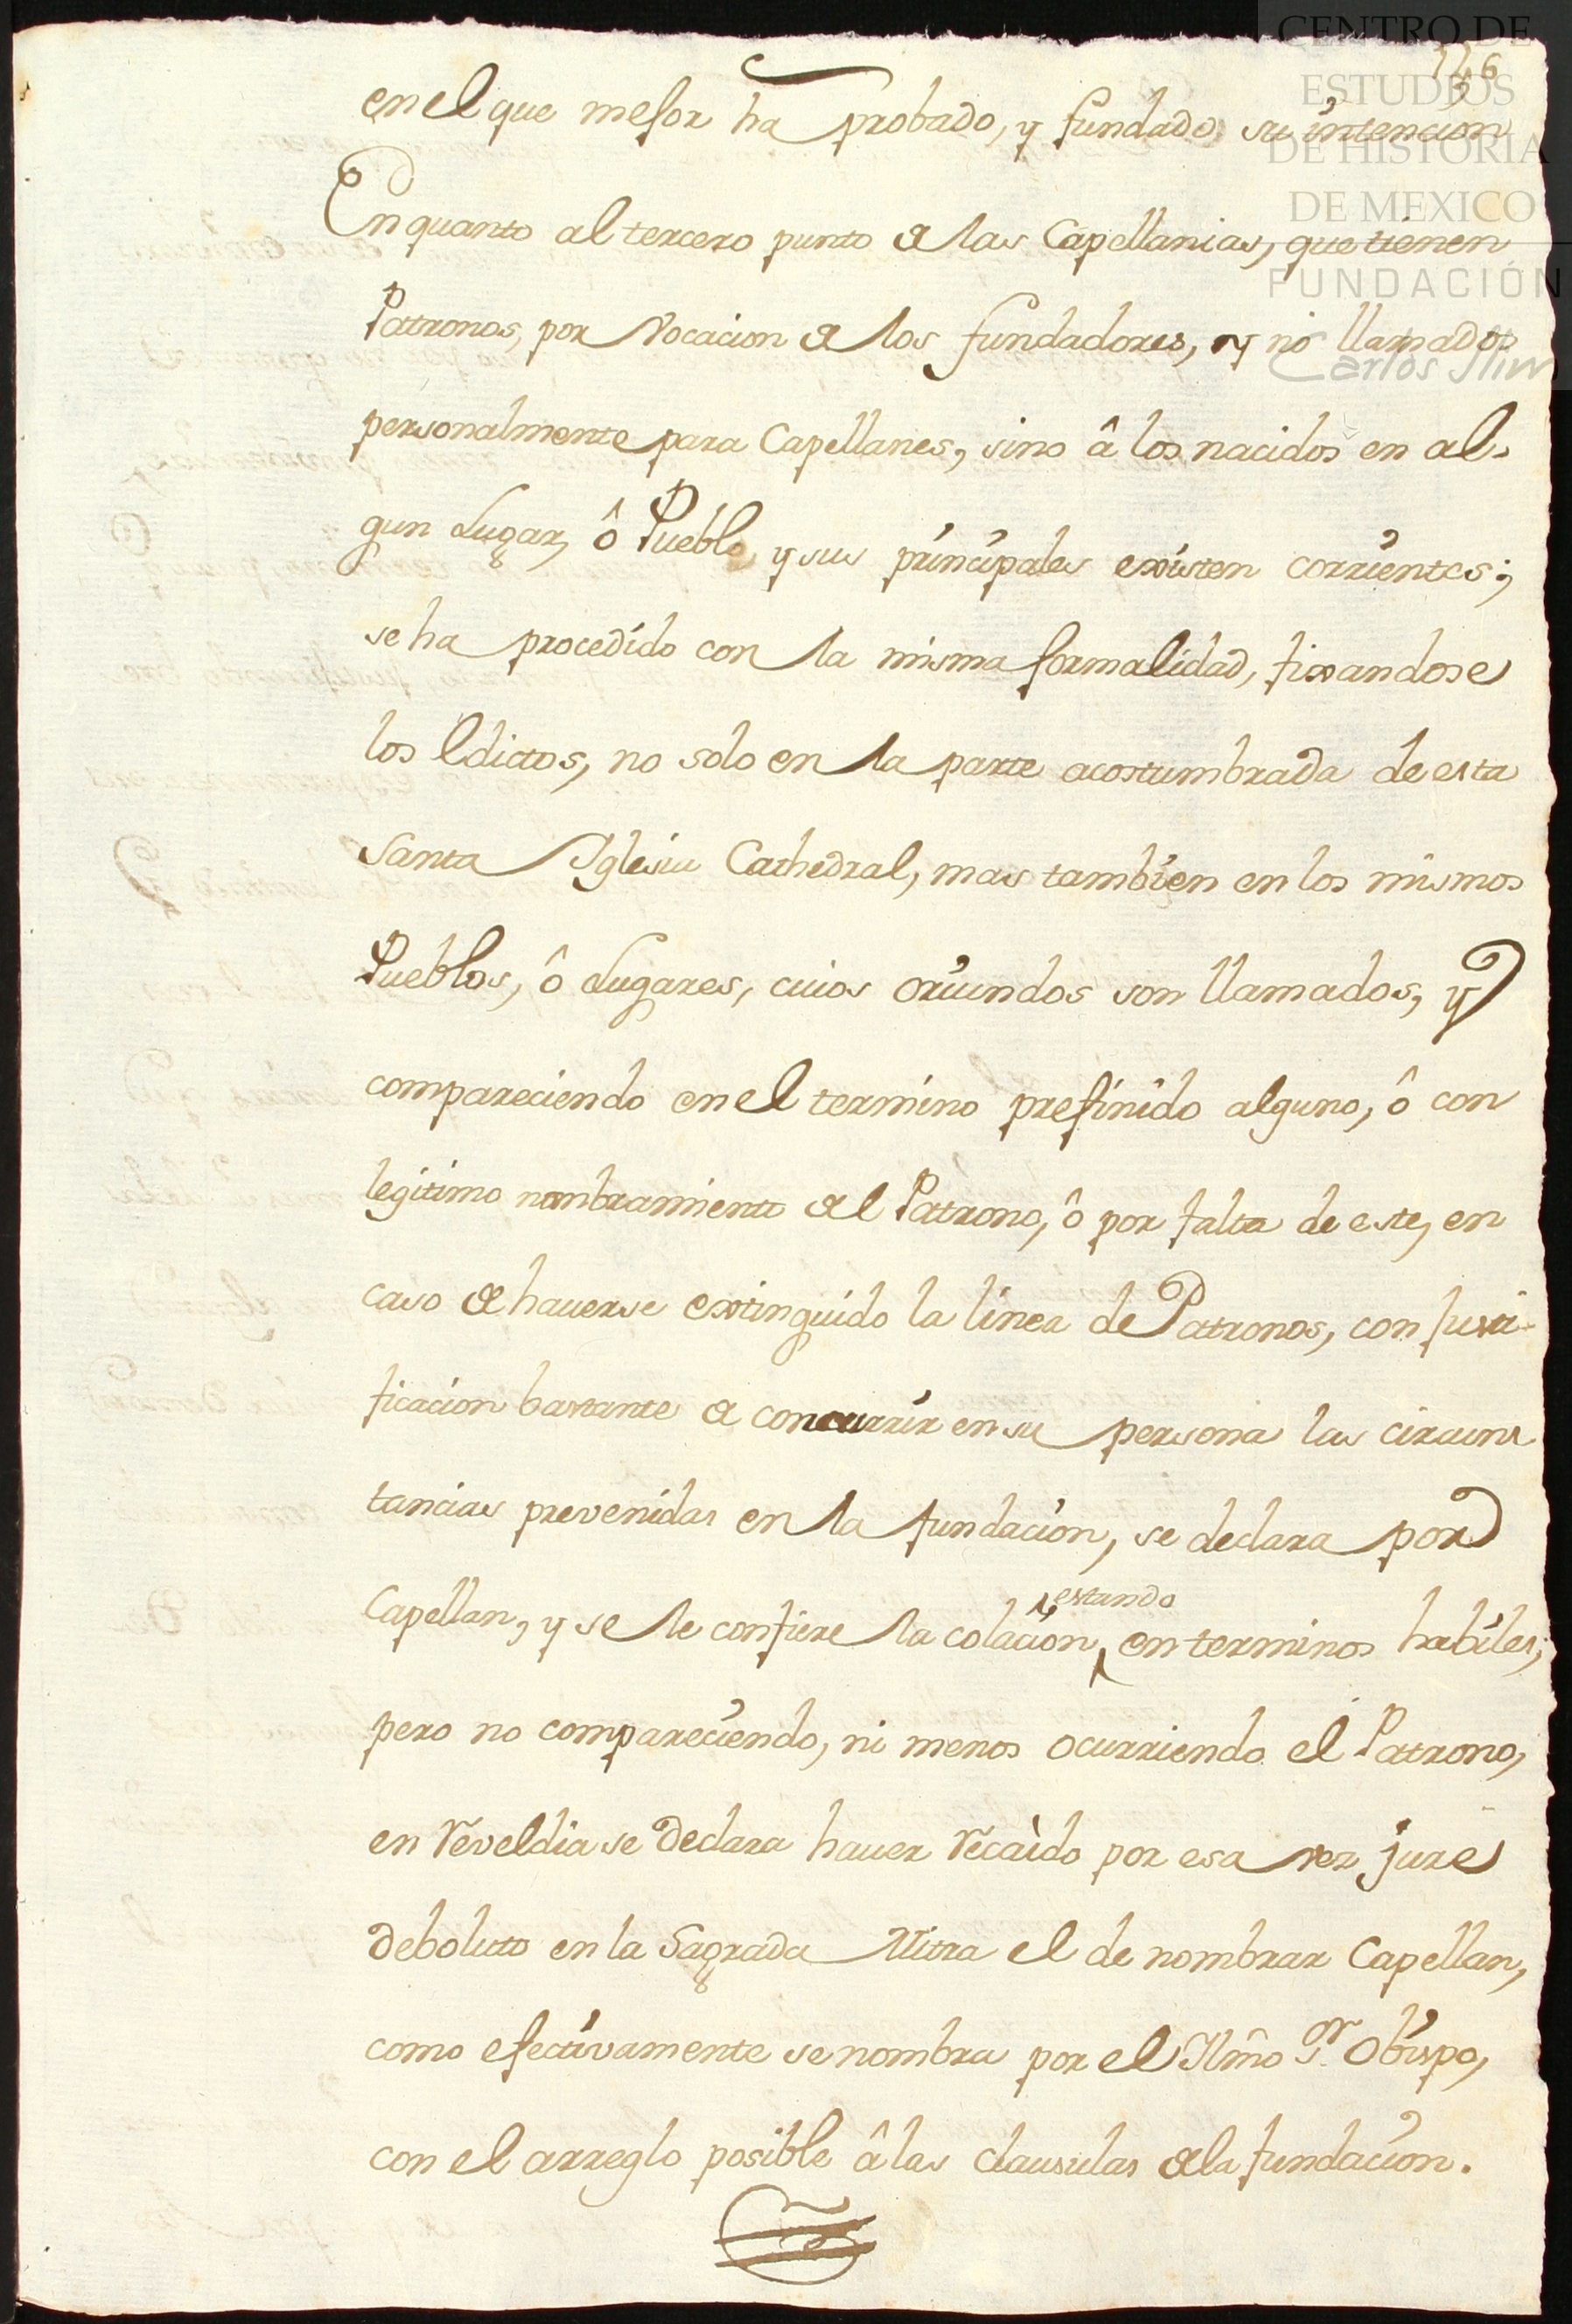 CENTRO DE
ESTUDIOS
DE HISTORIA
DE MEXICO
FUNDACIÓN
Carlos Slim
146
en el que mejor ha probado, y fundado su intencion
En quanto al tercero punto de las Capellanias, que tienen
Patronos, por vocacion de los fundadores, y no llamados
personalmente para Capellanes, sino â los nacidos en al-
gun Lugar, ô Pueblo, y sus principales existen corrientes;
se ha procedido con la misma formalidad, fixandose
los Edictos, no solo en la parte acostumbrada de esta
Santa Iglesia Cathedral, mas tambien en los mismos
Pueblos, ô Lugares, cuios oriundos son llamados, y
compareciendo en el termino prefinido alguno, ô con
legitimo nombramiento del Patrono, ô por falta de este, en
caso de hauerse extinguido la linea de Patronos, con justi-
ficacion bastante de concurrir en su persona las circuns
tancias prevenidas en la fundacion, se declara por
Capellan, y se le confiere la colacion, estando en terminos habiles;
pero no compareciendo, ni menos ocurriendo el Patrono,
en reveldia se declara hauer recaìdo por esa vez jure
deboluto en la Sagrada Mitra el de nombrar Capellan,
como efectivamente se nombra por el Illmô Sor. Obispo,
con el arreglo posible â las clausulas de la fundacion.